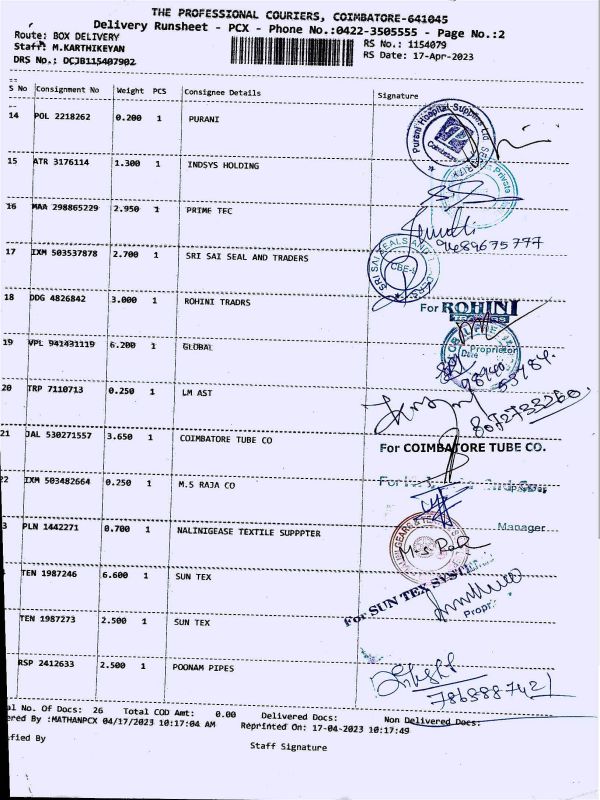 THE PROFESSIONAL COURIERS, COIMBATORE-641045
Delivery Runsheet - PCX - Phone No.:0422-3505555 - Page No.:2
Route: BOX DELIVERY RS No.: 1154079
Staff: M.KARTHIKEYAN RS Date: 17-Apr-2023
DRS No.: DCJB115407902
S No Consignment No Weight PCS Consignee Details Signature
14 POL 2218262 0.200 1 PURANI
Purani Hospital Supplies Ltd
15 ATR 3176114 1.300 1 INDSYS HOLDING
Private
16 MAA 298865229 2.950 1 PRIME TEC
9489675777
17 IXM 503537878 2.700 1 SRI SAI SEAL AND TRADERS
SRI SAI SEALS AND
CBE-4
18 DDG 4826842 3.000 1 ROHINI TRADRS
For ROHINI
TRADERS
Proprietor
19 VPL 941431119 6.200 1 GLOBAL
Date
20 TRP 7110713 0.250 1 LM AST
8072733260
21 JAL 530271557 3.650 1 COIMBATORE TUBE CO
For COIMBATORE TUBE CO.
22 IXM 503482664 0.250 1 M.S RAJA CO
Manager
3 PLN 1442271 0.700 1 NALINIGEASE TEXTILE SUPPPTER
TEN 1987246 6.600 1 SUN TEX
For SUN TEX SYSTEM
Propr
TEN 1987273 2.500 1 SUN TEX
RSP 2412633 2.500 1 POONAM PIPES
al No. Of Docs: 26 Total COD Amt: 0.00 Delivered Docs: Non Delivered Docs:
ered By :MATHANPCX 04/17/2023 10:17:04 AM Reprinted On: 17-04-2023 10:17:49
ified By
Staff Signature